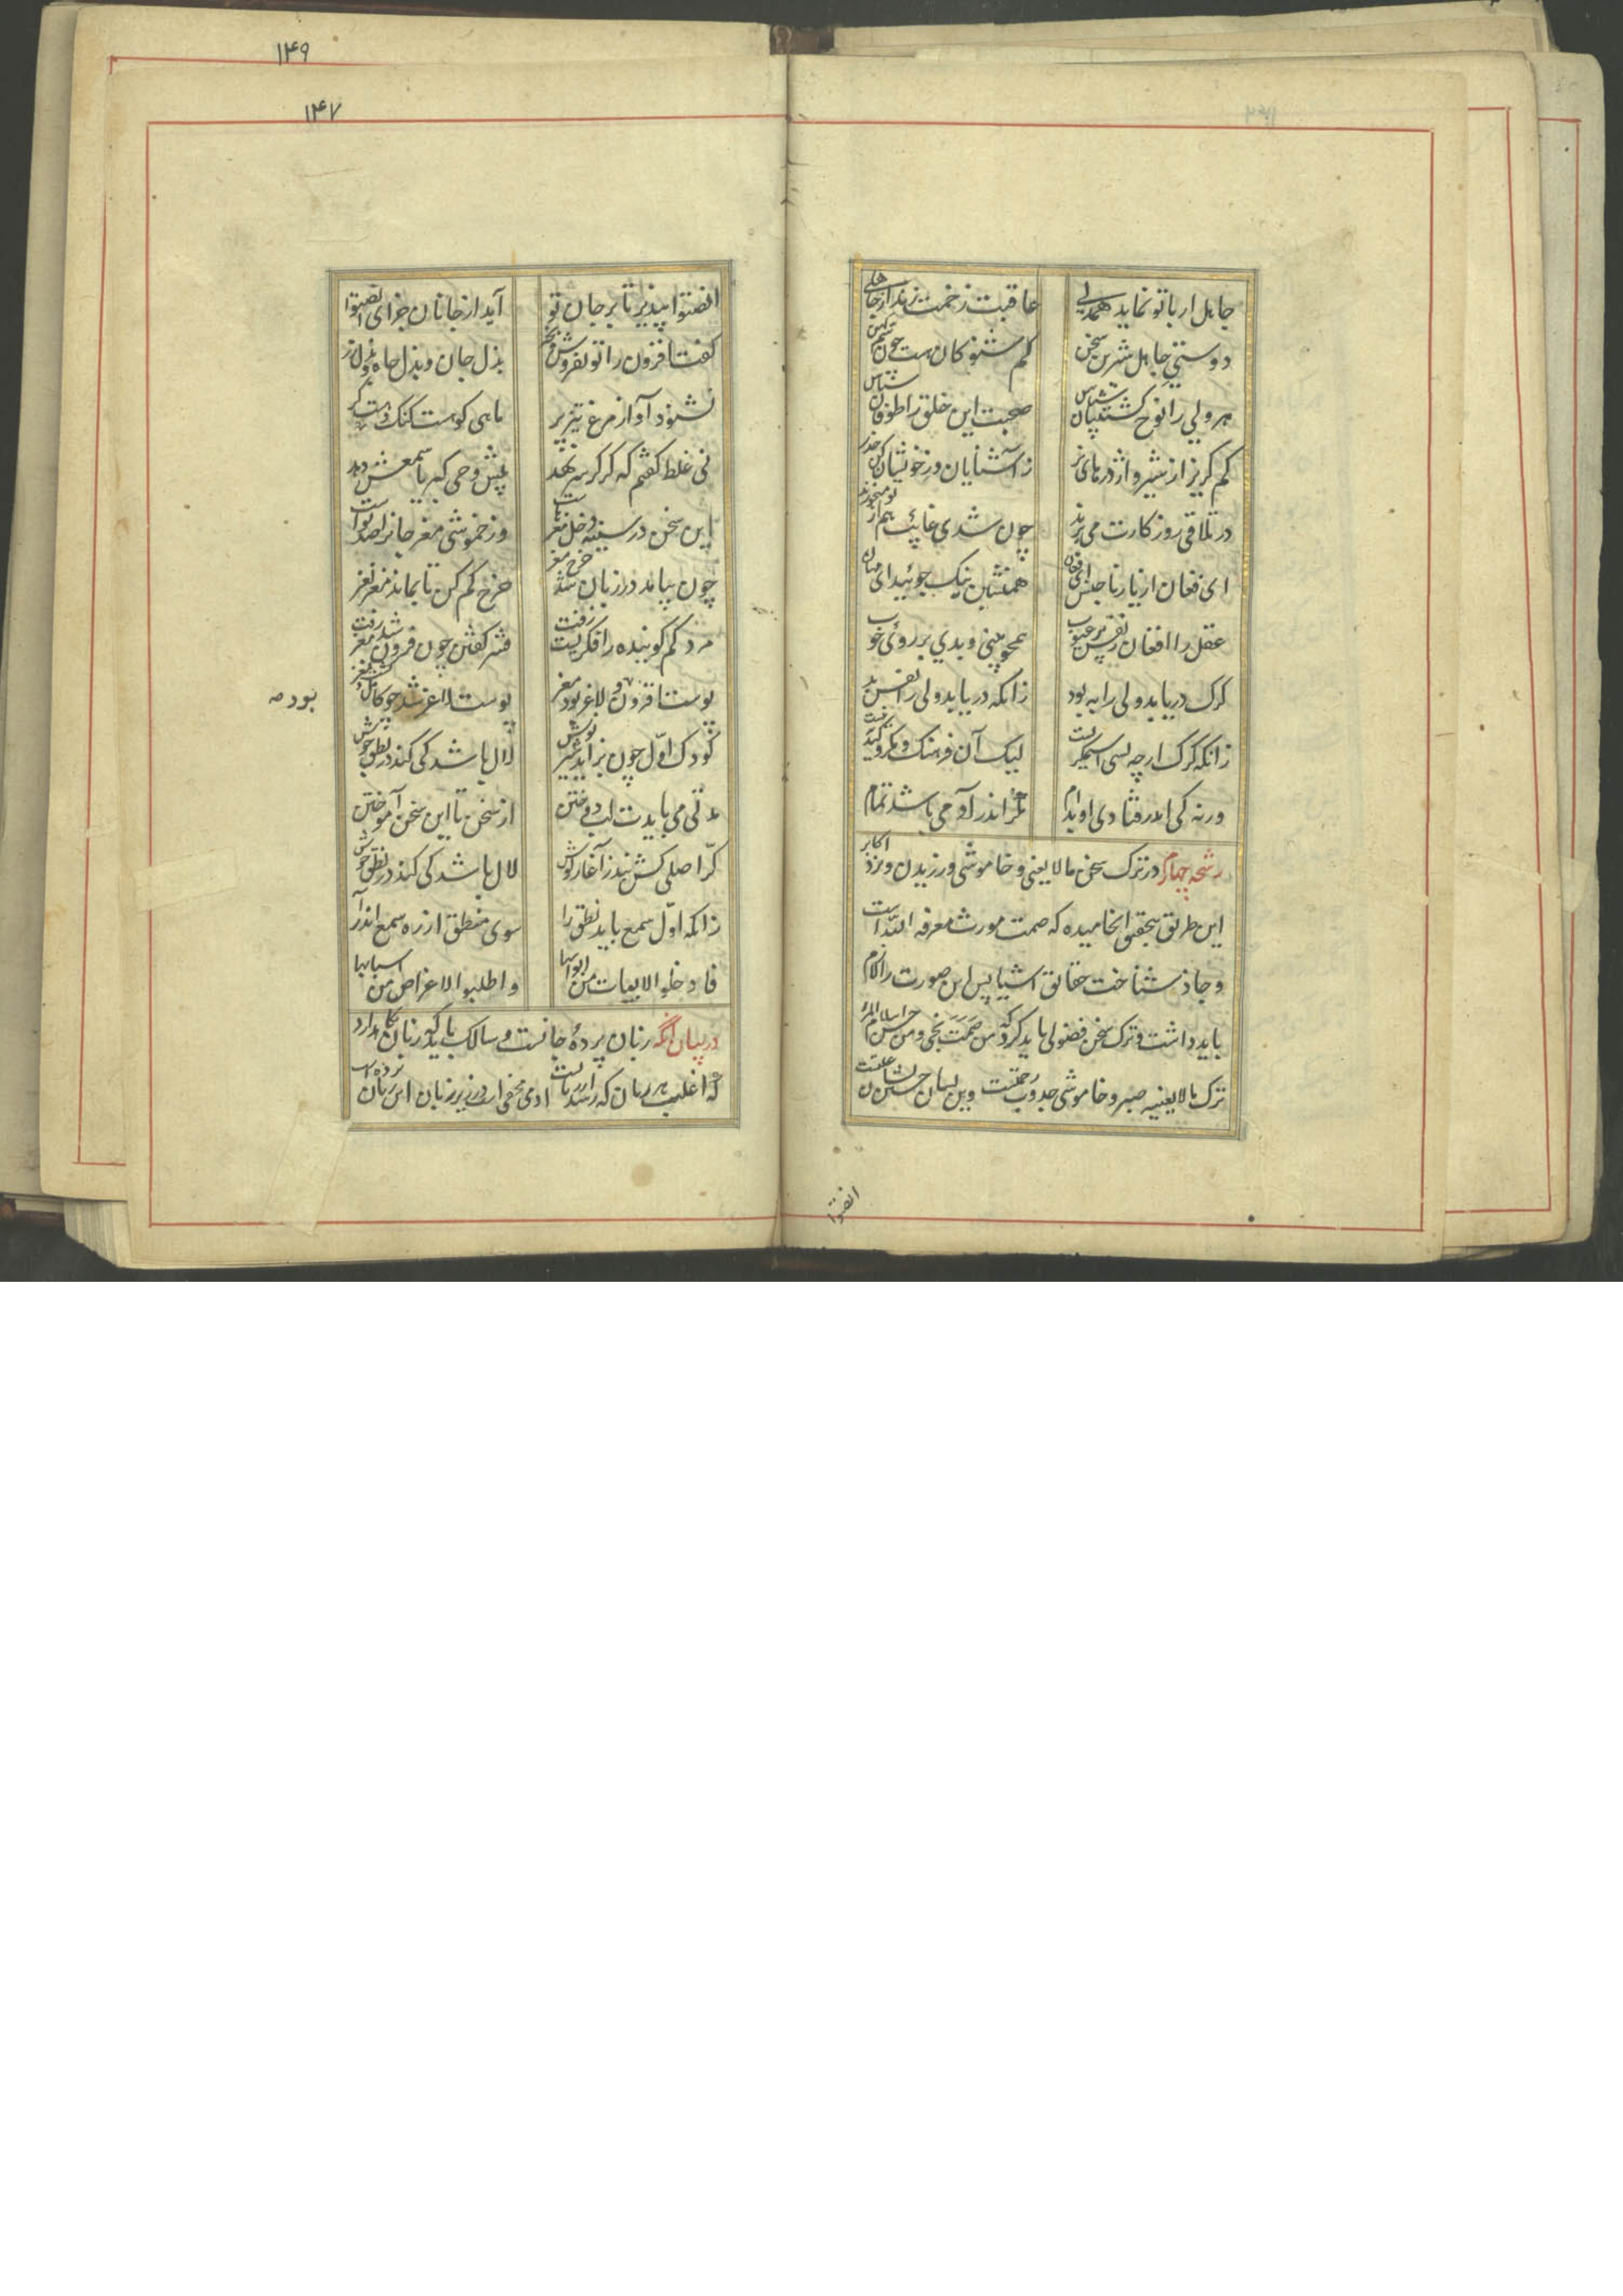 ۱۴۹
۱۴۷
جاهل ار با تو نماید همدلی عاقبت زخمت زند از جاهلی
دوستی جاهل شیرین سخن کم شنو کان هست چون سم کهن
هر ولی را نوح کشتیبان شناس صحبت این خلق را طوفان شناس
کم گریز از شیر و اژدرهای نر زآشنایان و ز خویشان کن حذر
در تلاقی روزگارت می برند چون شدی غایب هم از تو میخورند
ای فغان از یار ناجنس ای فغان همنشین نیک جوئید ای مهان
عقل را افغان ز نفس پر عیوب همچو بینی بدی بر روی خوب
گرگ دریابد ولی را به بود زانکه دریابد ولی را نفس بد
زانکه گرگ ارچه بسی استمگریست لیک آن فرهنگ و مکر و کید نیست
ورنه کی اندر فتادی او بدام مکر اندر آدمی باشد تمام
رشحه چهارم در ترک سخن مالایعنی و خاموشی ورزیدن و نزد اکابر
این طریق بتحقیق انجامیده که صمت مورث معرفه الله است
و جاذ شناخت حقائق اشیا پس این صورت را لازم
باید داشت و ترک سخن فضولی باید کرد که من صمت نجی و من حسن اسلام المرء
ترک مالایعنیه صبر و خاموشی جذوب رحمتست وین نشان جستن نشان علتست
انصتوا
انصتوا بپذیر تا بر جان تو آید از جانان جزای انصتوا
گفت افزون را تو بفروش و بخر بذل جان و بذل جاه و بذل زر
نشنود آواز مرغ تیز پر ماهی کو هست گنگ و هست کر
نی غلط گفتم که کر گر سر نهد پیش وحی کبریا سمعش دهد
این سخن در سینه دخل مغزهاست وز خموشی مغز جانرا صد نواست
چون بیامد در زبان شد خرج مغز خرج کم کن تا بماند مغز نغز
مرد کم گوینده را فکریست زفت قشر گفتن چون فزون شد مغز رفت
پوست افزون و لاغر بود مغز پوست لاغر شد چو کامل گشت نغز
بود صه
کودک اول چون بزاید شیر نوش لال باشد کی کند در نطق جوش
مدتی می بایدت لب دوختن از سخن تا این سخن آموختن
کر اصلی کش نبد ز آغاز گوش لال باشد کی کند در نطق جوش
زانکه اول سمع باید نطق را سوی منطق از ره سمع اندر آ
فادخلوا الابیات من ابوابها واطلبوا الاغراض من اسبابها
در بیان آنکه زبان پردهٔ جانست و سالک باید که زبان نگاه دارد
که اغلب هر زیان که رسد از زبانست آدمی مخفی است در زیر زبان این زبان پرده است